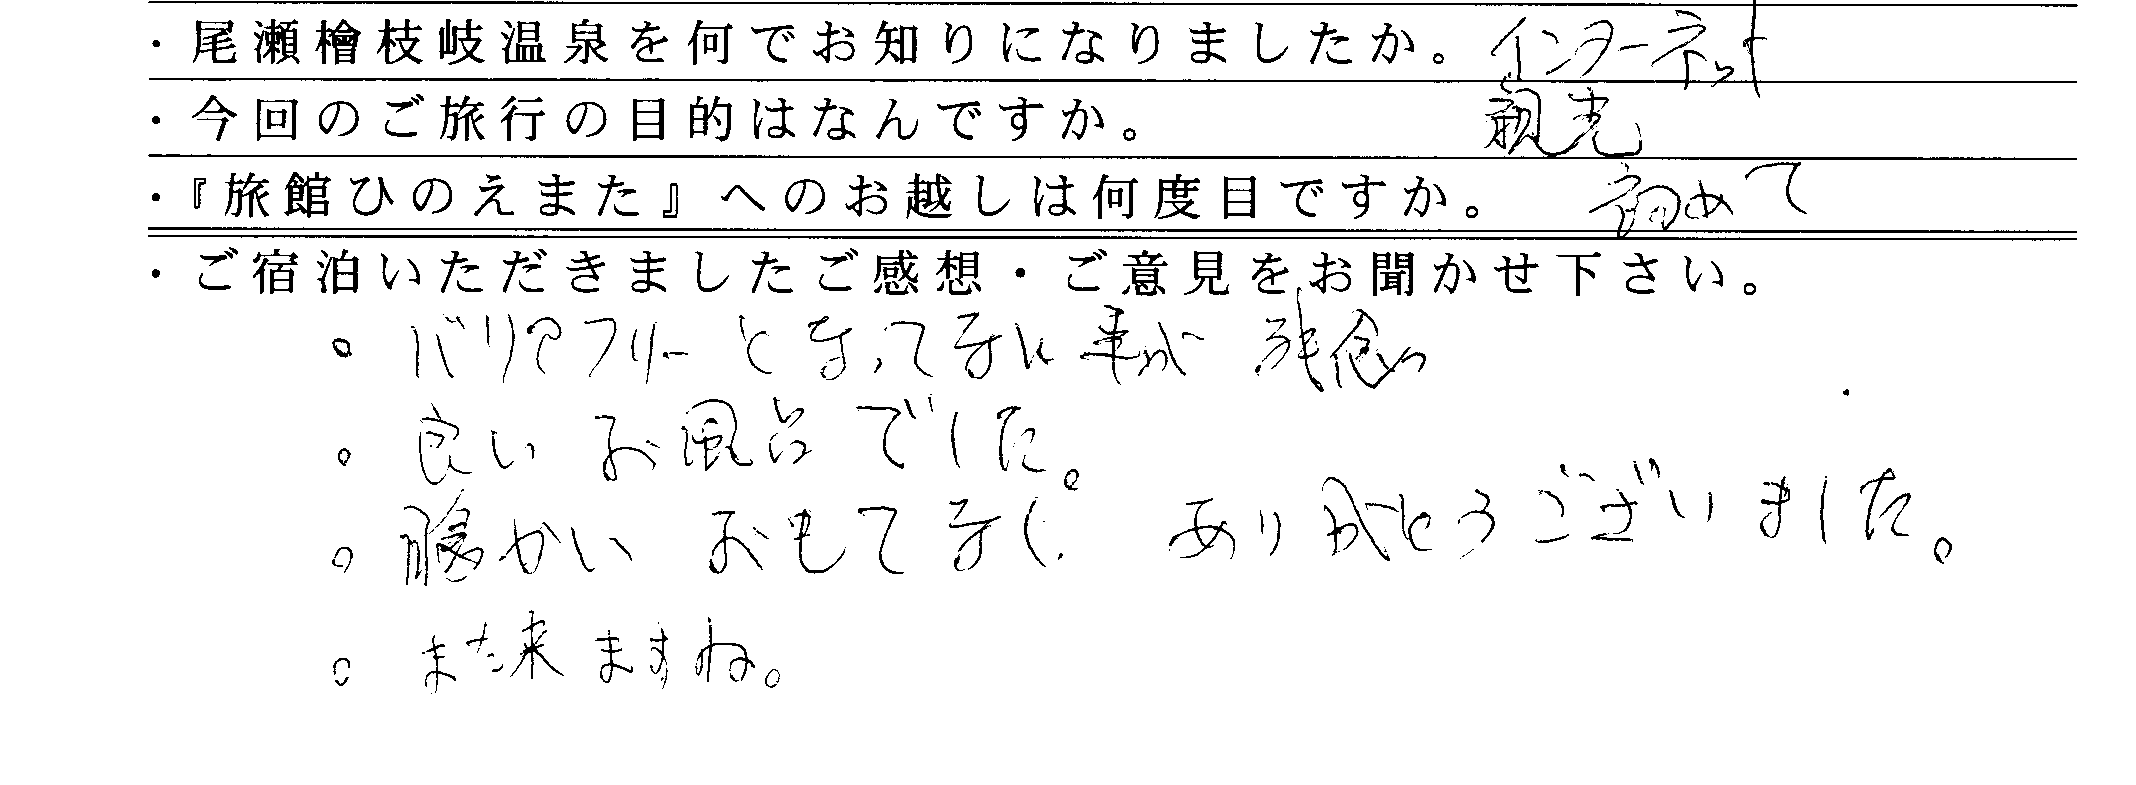 ・尾瀬檜枝岐温泉を何でお知りになりましたか。インターネット
・今回のご旅行の目的はなんですか。 観光
・『旅館ひのえまた』へのお越しは何度目ですか。 初めて
・ご宿泊いただきましたご感想・ご意見をお聞かせ下さい。
。バリアフリーとなってない事が 残念
。良いお風呂でした。
。暖かい おもてなし ありがとうございました。
。また来ますね。